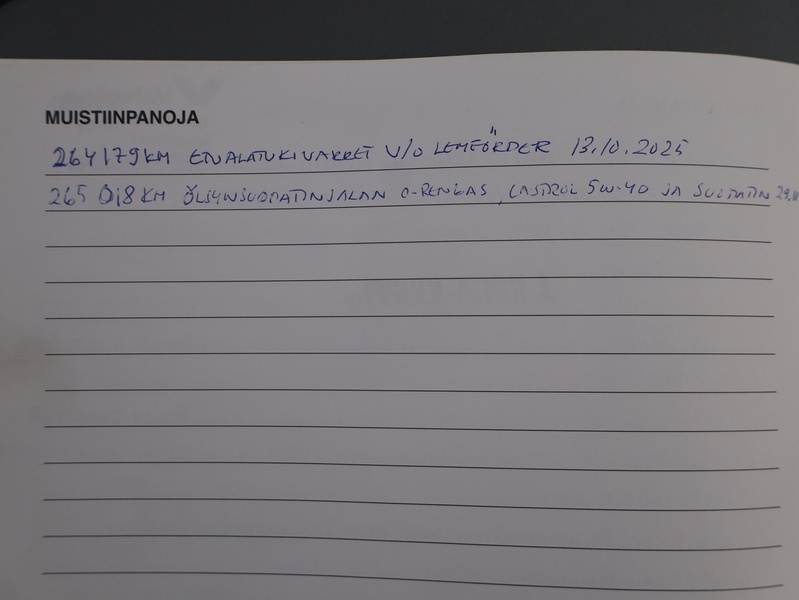 MUISTIINPANOJA
264179 KM ETUALATUKIVARRET V/O LEMFÖRDER 13.10.2025
265 018 KM ÖLJYNSUODATINJALAN O-RENGAS, CASTROL 5W-40 JA SUODATIN